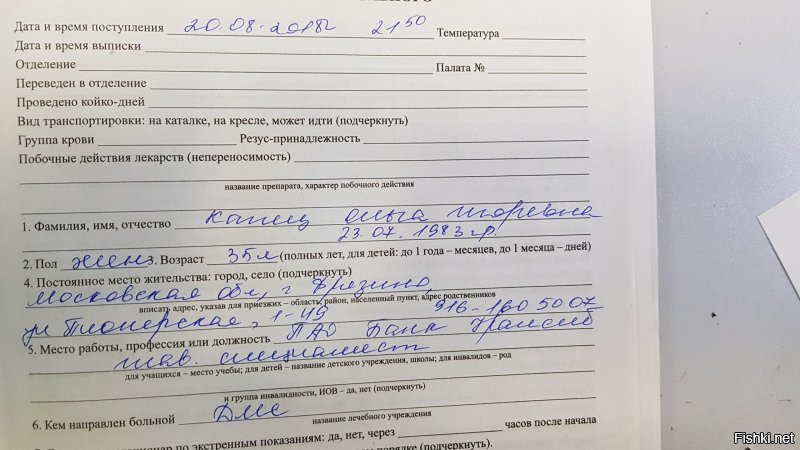 Дата и время поступления 20.08.2018г 21⁵⁰ Температура
Дата и время выписки
Отделение Палата №
Переведен в отделение
Проведено койко-дней
Вид транспортировки: на каталке, на кресле, может идти (подчеркнуть)
Группа крови Резус-принадлежность
Побочные действия лекарств (непереносимость)
название препарата, характер побочного действия
1. Фамилия, имя, отчество Капец Ольга Игоревна
23.07.1983 г.р.
2. Пол жен 3. Возраст 35л (полных лет, для детей: до 1 года – месяцев, до 1 месяца – дней)
4. Постоянное место жительства: город, село (подчеркнуть)
Московская обл, г Фрязино
вписать адрес, указав для приезжих – область, район, населенный пункт, адрес родственников
ул Пионерская, 1-49 916-160 50 07
5. Место работы, профессия или должность ПАО Банк Уралсиб
глав. специалист
для учащихся – место учебы; для детей – название детского учреждения, школы; для инвалидов – род
и группа инвалидности, ИОВ – да, нет (подчеркнуть)
6. Кем направлен больной ДМС
название лечебного учреждения
по экстренным показаниям: да, нет, через часов после начала
порядке (подчеркнуть).
Fishki.net